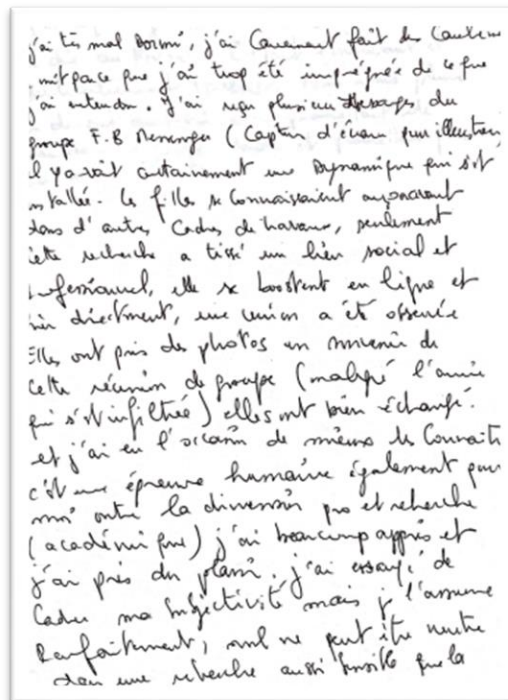 j'ai très mal dormi, j'ai carrément fait des cauchem
mit parce que j'ai trop été imprégnée de ce que
j'ai entendu. J'ai reçu plusieurs messages du
groupe F.B Messenger (Capture d'écran pour illustrer
Il y avait certainement une dynamique qui s'est
installée. Les filles se connaissaient auparavant
dans d'autres cadres de travaux, seulement
cette recherche a tissé un lien social et
professionnel, elle se boostent en ligne et
hier directement, une union a été observée
Elles ont pris des photos en souvenir de
cette réunion de groupe (malgré l'amie
qui s'est infiltrée) elles ont bien échangé.
et j'ai eu l'occasion de mieux les connaitr
c'est une épreuve humaine également pour
moi outre la dimension pro et recherche
(académique) j'ai beaucoup appris et
j'ai pris du plaisir. j'ai essayé de
cadrer ma subjectivité mais je l'assume
Parfaitement, nul ne peut être neutre
dans une recherche aussi sensible que la